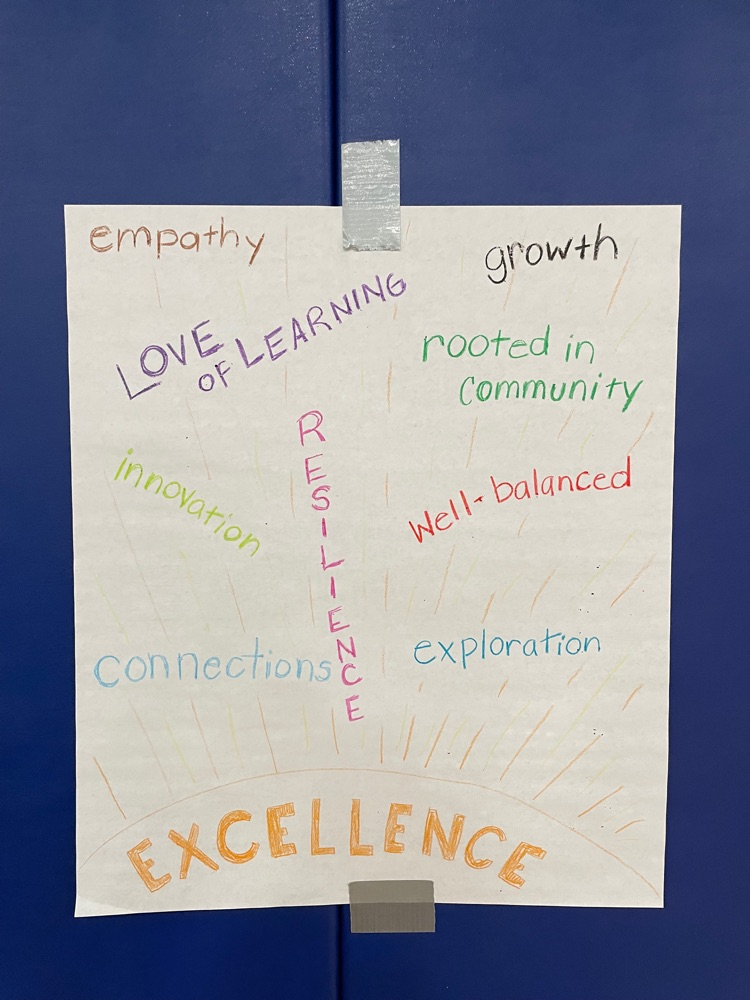 empathy
growth
LOVE
OF LEARNING
rooted in
community
RESILIENCE
innovation
Well-balanced
connections
exploration
EXCELLENCE